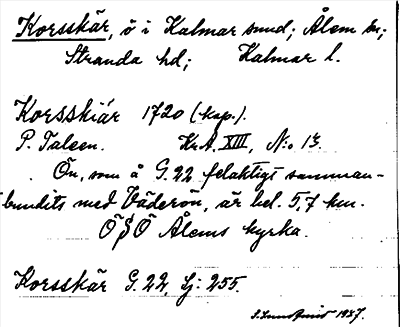 Korsskär, ö i Kalmar sund; Ålem sn;
Stranda hd; Kalmar l.
Korsskiär 1720 (kop.).
P. Taleen. Kr.A. XIII, N:o 13.
Ön, som å G.22 felaktigt samman-
bundits med Väderön, är bel. 5,7 km.
ÖSÖ Ålems kyrka.
Korsskär G.22, Lj: 255.
1937.